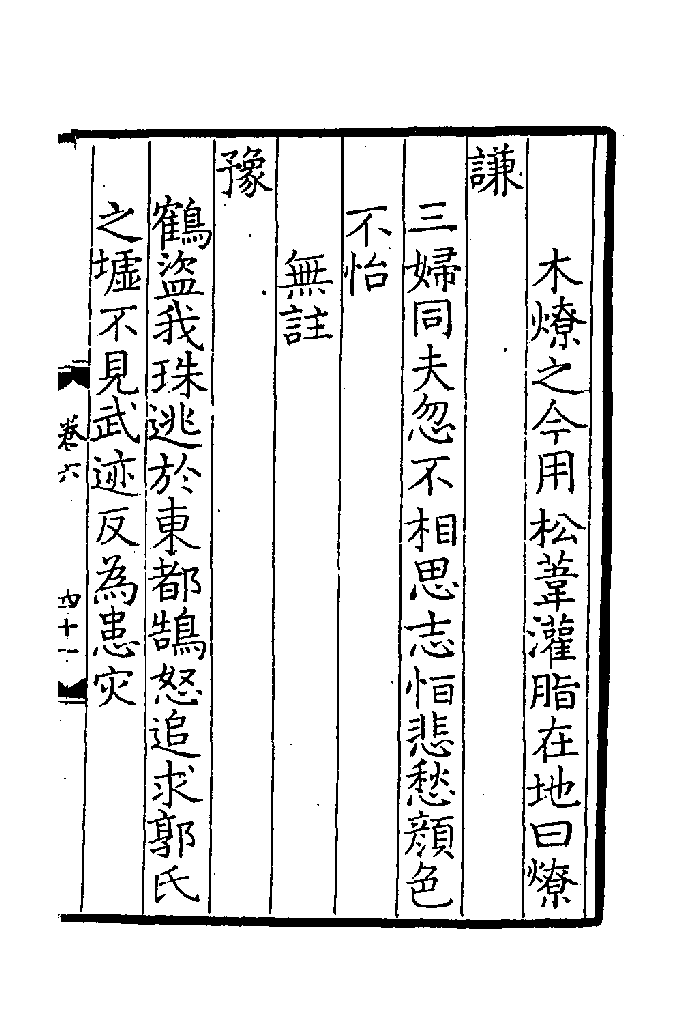 木燎之今用松葦灌脂在地曰燎
謙
三婦同夫忽不相思志恒悲愁顔色
不怡
無註
豫
鶴盜我珠逃於東都鵠怒追求郭氏
之墟不見武迹反為患灾
卷六
四十一